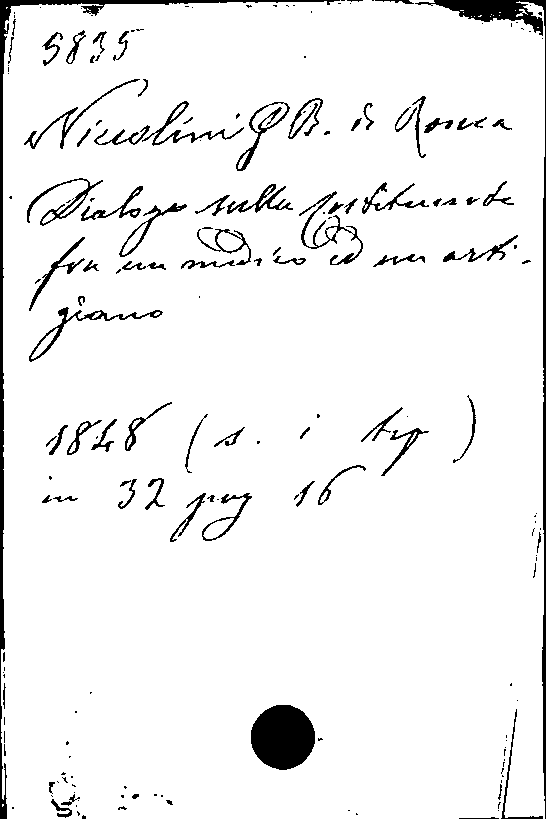 5835
Niccolini G B. di Ronca
Dialogo sulla costituente
fra un medico ed un arti-
giano
1848 (s. i tip)
in 32 pag 16